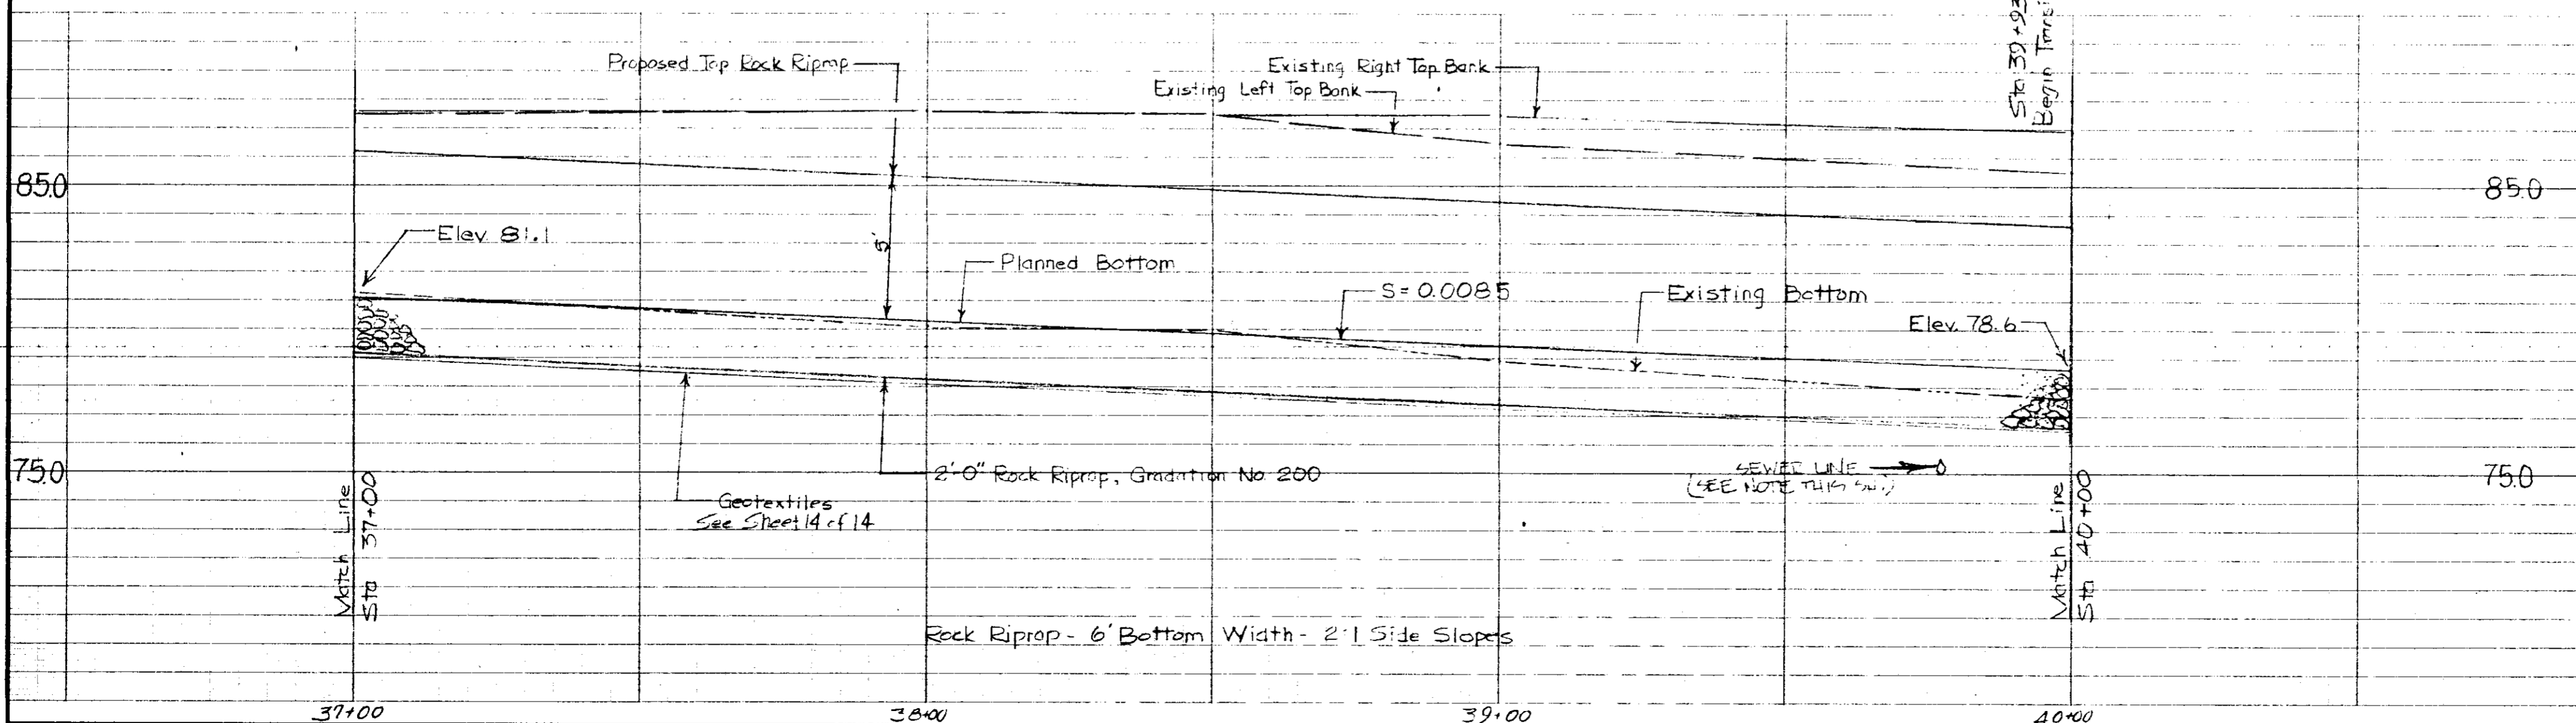 Sta 39+93
Begin
Proposed Top Rock Riprap
Existing Right Top Bank
Existing Left Top Bank
85.0
85.0
Elev. 81.1
5'
Planned Bottom
S= 0.0085
Existing Bottom
Elev. 78.6
75.0
2'-0" Rock Riprap, Gradation No. 200
SEWER LINE
(SEE NOTE THIS SHT.)
75.0
Geotextiles
See Sheet 14 of 14
Match Line
Sta 37+00
Match Line
Sta 40+00
Rock Riprap - 6' Bottom Width - 2:1 Side Slopes
37+00
38+00
39+00
40+00